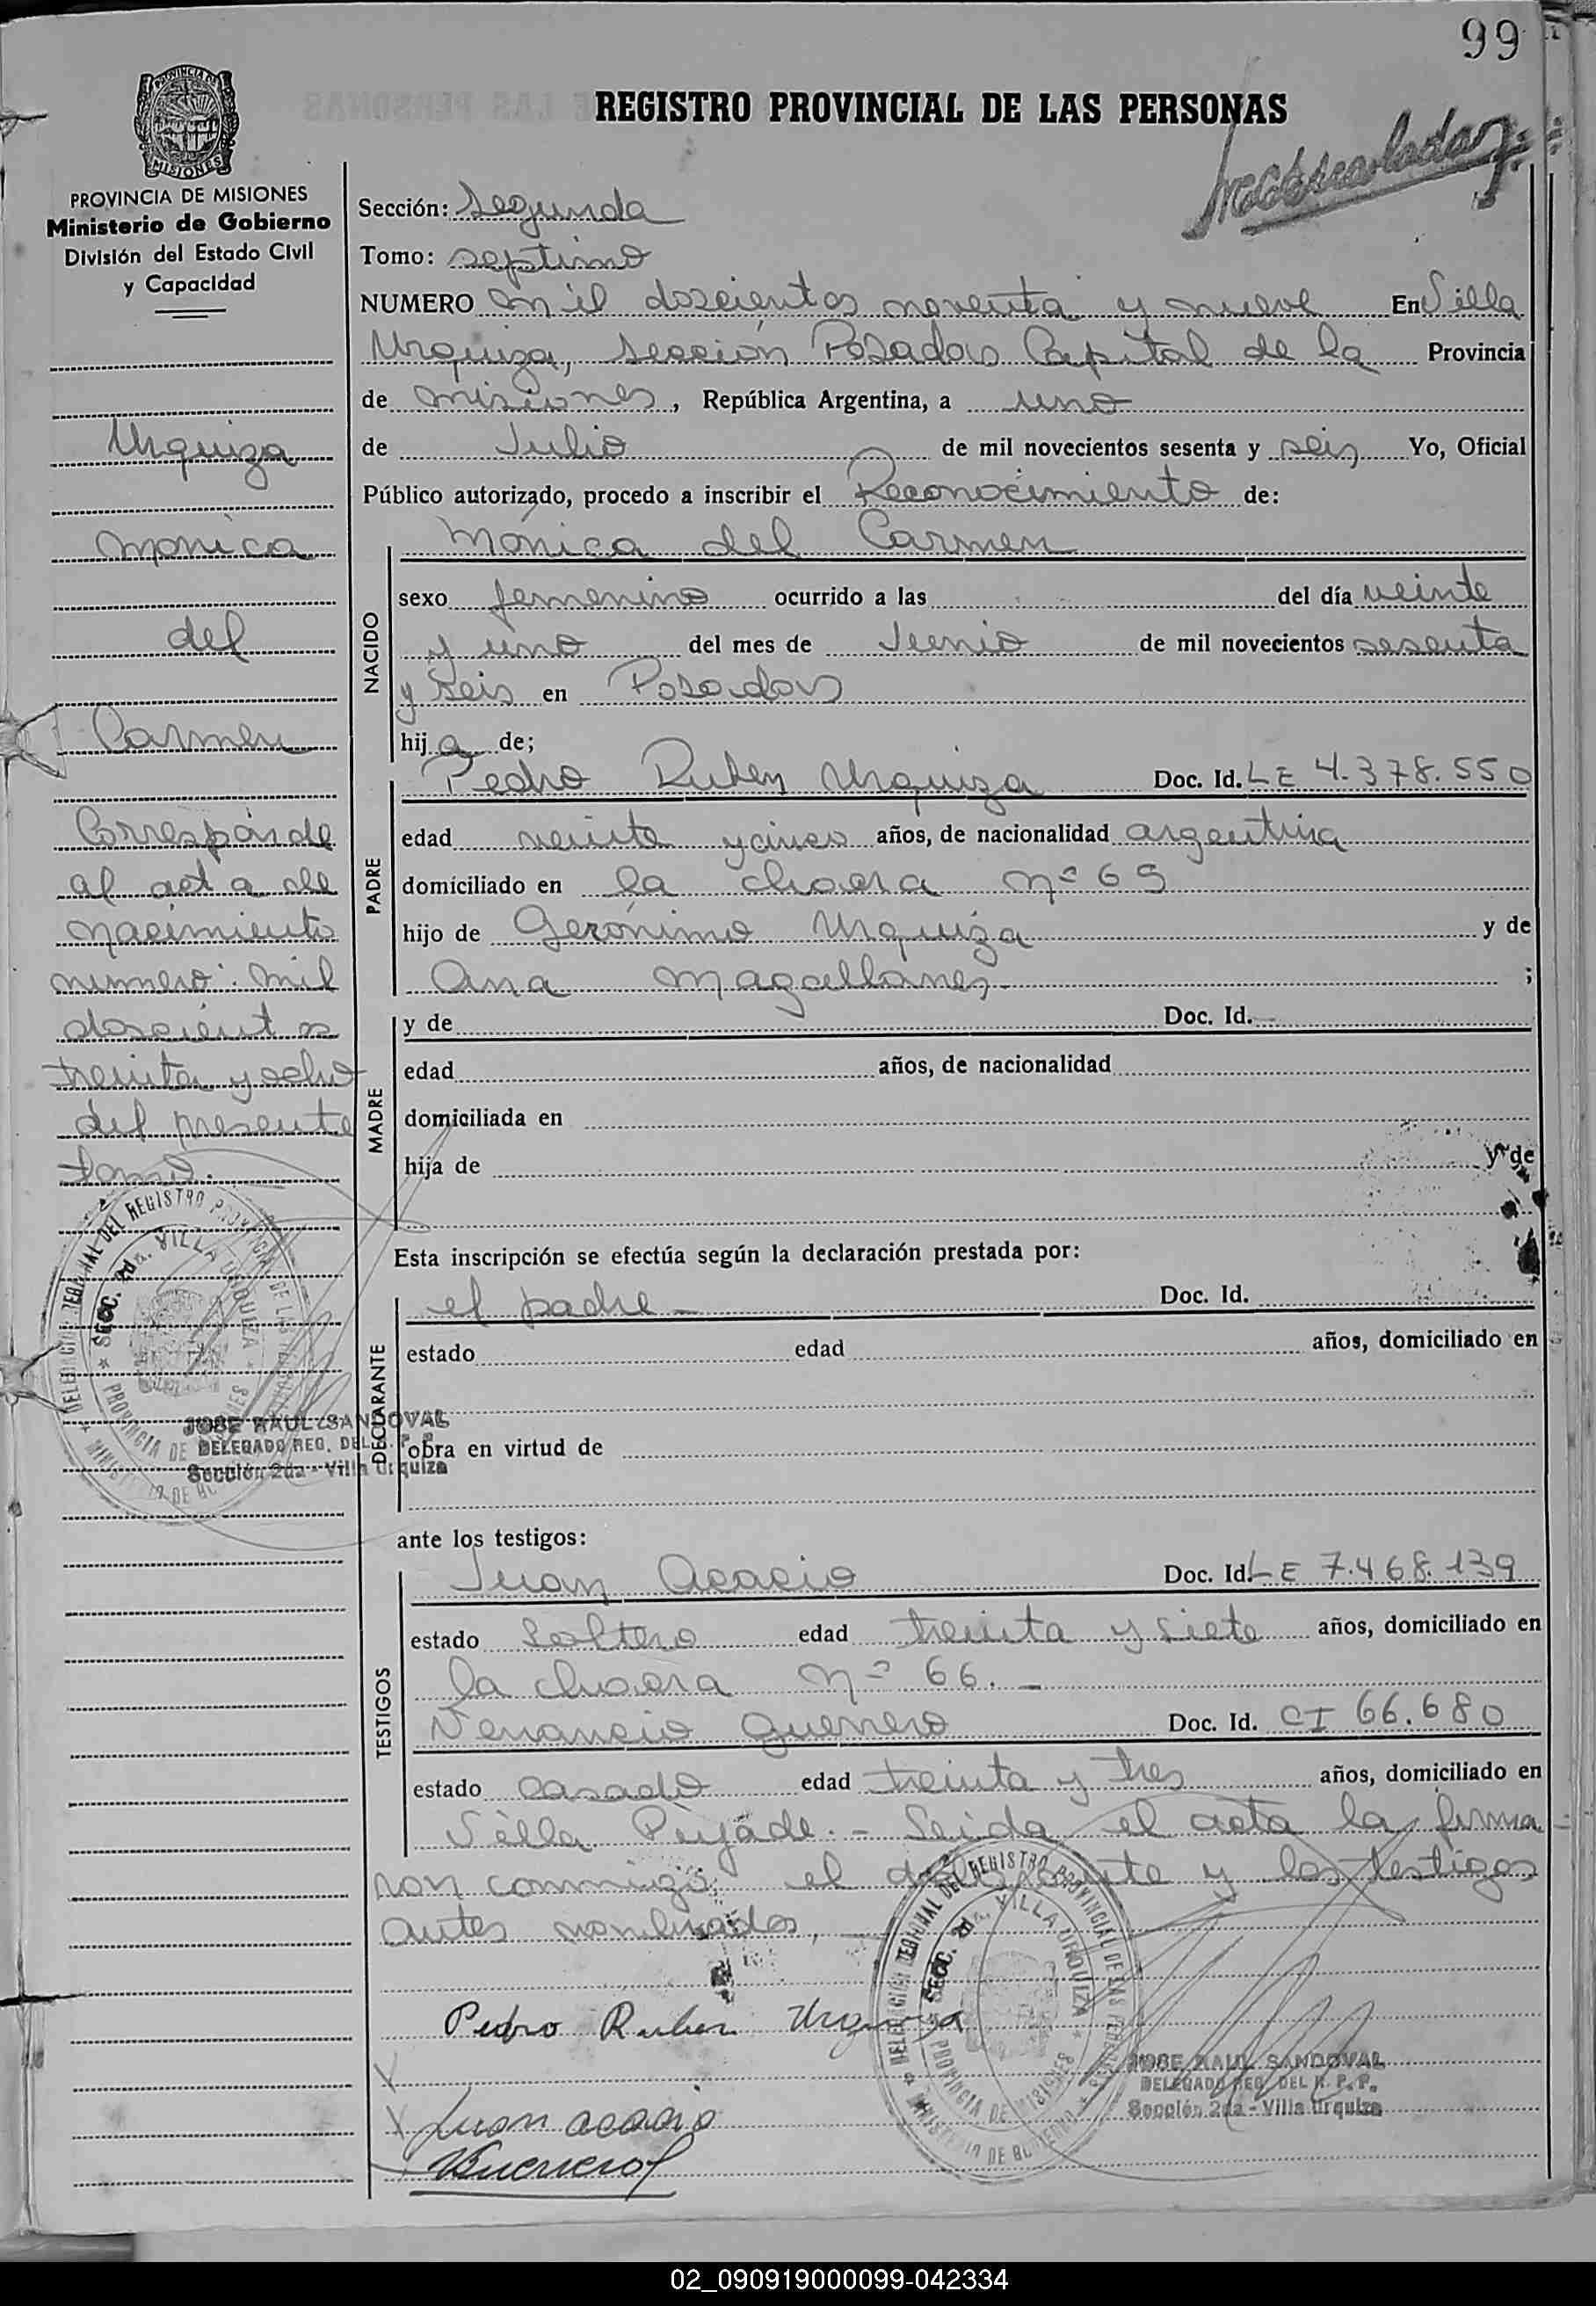 99
REGISTRO PROVINCIAL DE LAS PERSONAS
PROVINCIA DE MISIONES
Ministerio de Gobierno
División del Estado Civil
y Capacidad
Sección: Segunda
Tomo: septimo
NUMERO mil doscientos noventa y nueve En Villa
Urquiza, sección Posadas Capital de la Provincia
de misiones, República Argentina, a uno
de Julio de mil novecientos sesenta y seis Yo, Oficial
Público autorizado, procedo a inscribir el Reconocimiento de:
Urquiza
Monica
del
Carmen
Corresponde
al acta de
nacimiento
numero: mil
doscientos
treinta y ocho
del presente
tomo.
NACIDO
Mónica del Carmen
sexo femenino ocurrido a las del día veinte
y uno del mes de Junio de mil novecientos sesenta
y seis en Posadas
hija de;
PADRE
Pedro Ruben Urquiza Doc. Id. LE 4.378.550
edad veinte y cinco años, de nacionalidad argentina
domiciliado en la chacra nº 69
hijo de Gerónimo Urquiza y de
Ana Magallanes ;
MADRE
y de Doc. Id.
edad años, de nacionalidad
domiciliada en
hija de y de
Esta inscripción se efectúa según la declaración prestada por:
DECLARANTE
el padre - Doc. Id.
estado edad años, domiciliado en
obra en virtud de
DELEGACION REGIONAL DEL REGISTRO PROVINCIAL DE LAS PERSONAS
SECC. 2da. VILLA URQUIZA
PROVINCIA DE MISIONES
MINISTERIO DE GOBIERNO
JOSE RAUL SANDOVAL
DELEGADO REG. DEL R. P. P.
Sección 2da - Villa Urquiza
ante los testigos:
TESTIGOS
Juan Acacio Doc. Id. LE 7.468.139
estado Soltero edad treinta y siete años, domiciliado en
la chacra nº 66. -
Venancio Guerrero Doc. Id. CI 66.680
estado casado edad treinta y tres años, domiciliado en
Villa . - Leida el acta la firma
ron conmigo, el declarante y los testigos
antes nombrados,
Pedro Ruben Urquiza
Juan acacio
DELEGACION REGIONAL DEL REGISTRO PROVINCIAL DE LAS PERSONAS
SECC. 2da. VILLA URQUIZA
PROVINCIA DE MISIONES
MINISTERIO DE GOBIERNO
JOSE RAUL SANDOVAL
DELEGADO REG. DEL R. P. P.
Sección 2da - Villa Urquiza
02_090919000099-042334